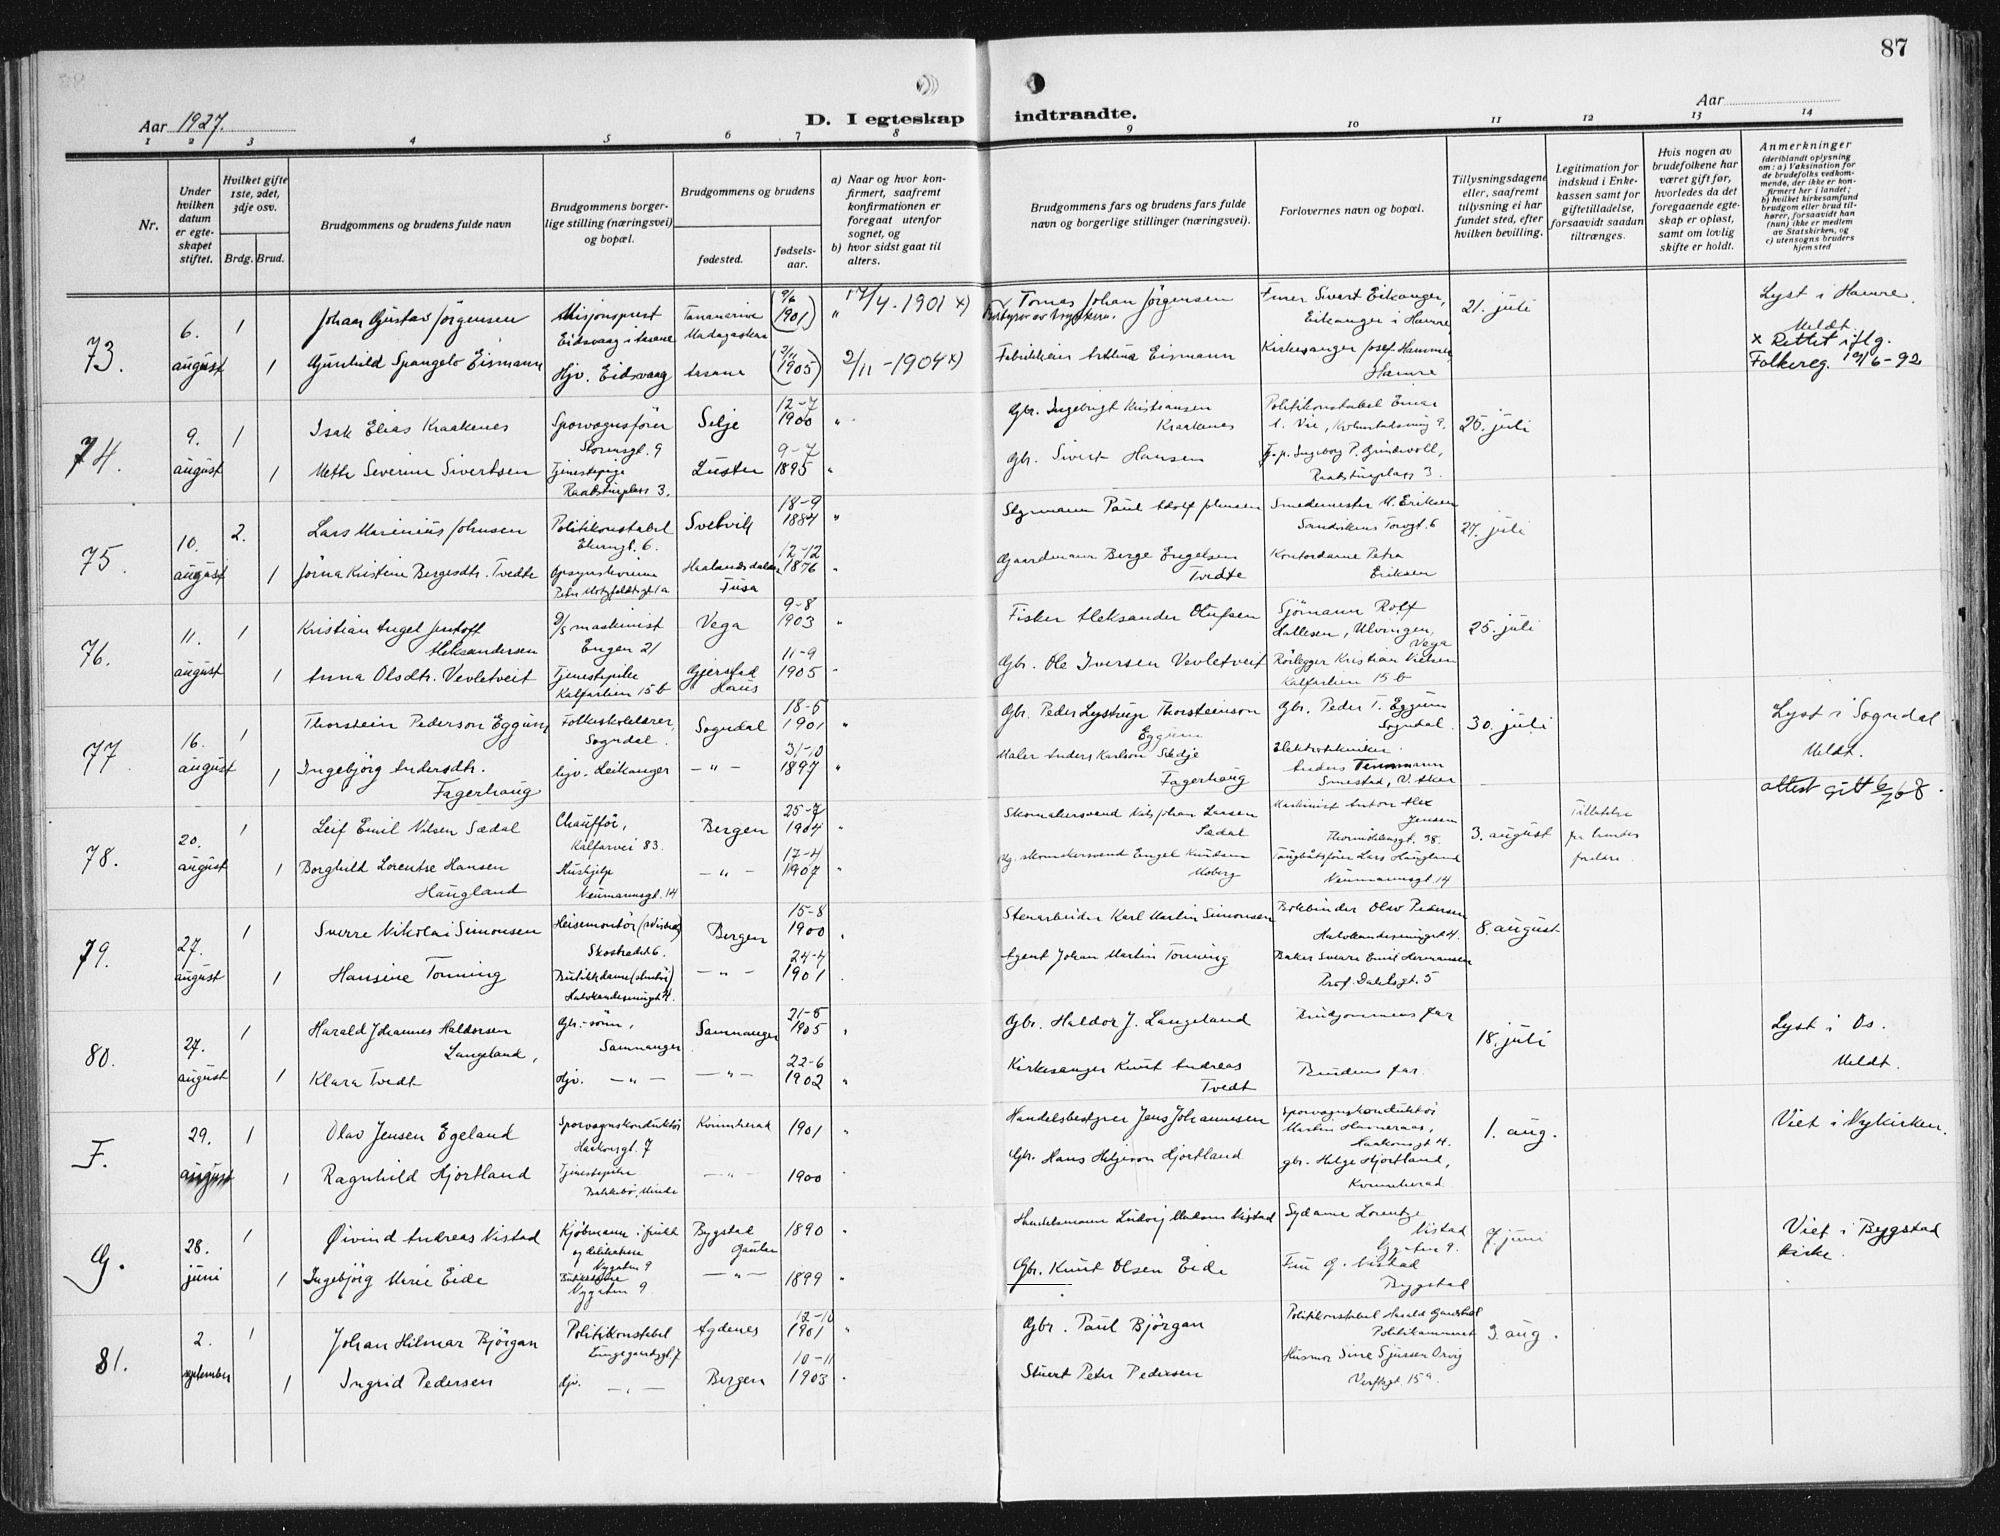 87
Aar 1927.
D. I egteskap indtraadte.
Aar
1 2 3 4 5 6 7 8 9 10 11 12 13 14
Nr.
Under hvilken datum er egteskapet stiftet.
Hvilket gifte 1ste, 2det, 3dje osv.
Brdg. Brud.
Brudgommens og brudens fulde navn
Brudgommens borgerlige stilling (næringsvei) og bopæl.
Brudgommens og brudens
fødested.
fødselsaar.
a) Naar og hvor konfirmert, saafremt konfirmationen er foregaat utenfor sognet, og
b) hvor sidst gaat til alters.
Brudgommens fars og brudens fars fulde navn og borgerlige stillinger (næringsvei).
Forlovernes navn og bopæl.
Tillysningsdagene eller, saafremt tillysning ei har fundet sted, efter hvilken bevilling.
Legitimation for indskud i Enkekassen samt for giftetilladelse, forsaavidt saadan tiltrænges.
Hvis nogen av brudefolkene har været gift før, hvorledes da det foregaaende egteskap er opløst, samt om lovlig skifte er holdt.
Anmerkninger
(deriblandt oplysning om: a) Vaksination for de brudefolks vedkommende, der ikke er konfirmert her i landet; b) hvilket kirkesamfund brudgom eller brud tilhører, forsaavidt han (hun) ikke er medlem av Statskirken, og c) utensogns bruders hjemsted
73.
6. august
1
Johan Gustav Jørgensen
Misjonsprest Eidsvaag i Aasane
Tananarive Madagaskar
(9/6 1901)
" 17/4 - 1901 x)
Tomas Johan Jørgensen
Bestyrer av trykkeri.
Furer Sivert Eikanger, Eikanger i Hamre
21. juli
Lyst i Hamre.
Meldt.
x Rettet iflg. Folkereg. 19/6-92
1
Gunhild Spangelo Eismann
Hjv. Eidsvaag
Aasane
(2/11 1905)
2/11 - 1904 x)
Eismann
Kirkesanger Josef Hammer Hamre
74.
9. august
1
Isak Elias Kraakenes
Sporvognsfører
9
Selje
12-7 1900
"
Gbr. Ingebrigt Kristiansen Kraakenes
Politikonstabel Einar
25. juli
1
Mette Severine Sivertsen
Tjenestepige
Raadstuplass 3.
Luster
9-7 1895
"
Gbr. Sivert Hansen
Raadstuplass 3.
75.
10. august
2.
Lars Marinius Johnsen
Politikonstabel
6.
Svelvik
18-9 1884
"
Styrmann Paul Adolf Johnsen
Smedemester M. Eriksen
Sandvikens Torvgt. 6
27. juli
1
Jørna Kristine Bergesdtr. Tvedte
Haalandsdalen Fusa
12-12 1876
"
Gaardmann Berge Engelsen Tvedte
Kontordame Petra Eriksen
76.
11. august
1
Kristian Angel Jentoft Aleksandersen
D/S maskinist
Engen 21
Vega
9-8 1903
"
Fisker Aleksander Olufsen
Sjømann Rolf
Ulvingen, Vega
25. juli
1
Anna Olsdtr. Vevletveit
Tjenestepike
Kalfarlien 15 b
Gjerstad Haus
11-9 1905
"
Gbr. Ole Iversen Vevletveit
Rørlegger Kristian Nielsen
Kalfarlien 15 b
77.
16. august
1
Thorstein Pederson Eggum
Folkeskolelærer, Sogndal.
Sogndal
18-5 1901
"
Gbr. Peder Lystrup Thorsteinson Eggum
Gbr. Peder T. Eggum Sogndal.
30. juli
Lyst i Sogndal
Meldt.
attest gitt 6/6 68.
1
Ingebjørg Andersdtr. Fagerhaug
hjv. Leikanger
- " -
31-10 1897
"
Maler Anders Karlson Skedje Fagerhaug
Elektrotekniker Anders
Smestad, V. Aker
78.
20. august
1
Leif Emil Nilsen Sædal
Chauffør,
Kalfarvei 83.
Bergen
25-7 1904
"
Skomakersvend Nils Johan Larsen Sædal
Maskinist Anton Alex Jensen
Thormøhlensgt. 38.
3. august
Tilladelse fra hendes foreldre.
1
Borghild Lorentse Hansen Haugland
Hushjelp
Neumannsgt. 14
- " -
17-4 1907
"
skomakersvend Engel Knudsen Moberg
Taugbåtsfører Lars Haugland
Neumannsgt. 14
79.
27. august
1
Sverre Nikolai Simonsen
Heisemontør
Skostredet 6.
Bergen
15-8 1900
"
Stenarbeider Karl Martin Simonsen
Bokbinder Olav Pedersen
8. august
1
Hansine Tonning
Butikkdame
- " -
24-4 1901
Agent Johan Martin Tonning
Baker Sverre Emil Hermansen
Prof. Dahlsgt. 5
80.
27. august
1
Harald Johannes Haldorsen Langeland,
Gbr.-sønn, Samnanger
Samnanger
21-5 1905
"
Gbr. Haldor J. Langeland
Brudgommens far
18. juli
Lyst i Os.
Meldt.
1
Klara Tvedt
Hjv. - " -
- " -
22-6 1902
"
Kirkesanger Knut Andreas Tvedt
Brudens far.
F.
29. august
1
Olav Jensen Egeland
Sporvognskonduktør
Haakonsgt. 7
Kvinnherad
1901
"
Handelsbestyrer Jens Johannesen
Sporvognskonduktør Martin
Haakonsgt 4.
1. aug.
Viet i Nykirken.
1
Ragnhild Hjortland
Tjenestepike
Minde
- " -
1900
"
Gbr. Hans Helgeson Hjortland
gbr. Helge Hjortland, Kvinnherad.
G.
28. juni
1
Øivind Andreas Vistad
Kjøbmann i frukt og delikatesse
Nygaten 9
Bygstad Gaular
1890
"
Handelsmann Ludvig Vistad
Sydame Lorentze Vistad
Nygaten 9.
7. juni
Viet i Bygstad kirke.
1
Ingebjørg Marie Eide
Nygaten 9.
- " -
1899
"
Gbr. Knut Olsen Eide
Fru G. Vistad Bygstad
81.
2. september
1
Johan Hilmar Bjørgan
Politikonstabel
Lungegaardsgt 7
Agdenes
12-10 1901
"
Gbr. Paul Bjørgan
Politikonstabel Harald
Politikammeret
3. aug.
1
Ingrid Pedersen
Hjv. - " -
Bergen
10-11 1903
Stuert Peter Pedersen
Husmor Sine Sjursen Orvig
Verftsgt. 15 a.